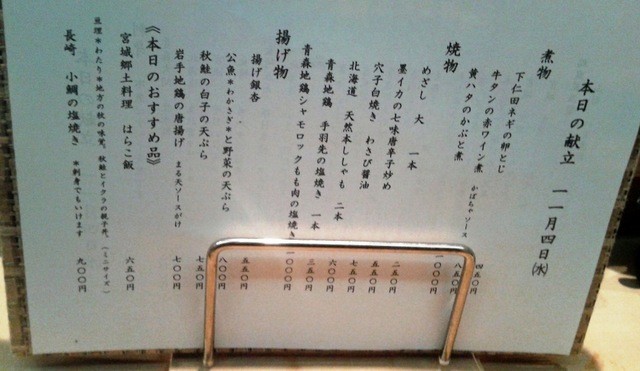 本日の献立 一一月四日(水)
煮物
下仁田ネギの卵とじ 四五〇円
牛タンの赤ワイン煮 かぼちゃソース 八五〇円
黄ハタのかぶと煮 一〇〇〇円
焼物
めざし 大 一本 二五〇円
墨イカの七味唐辛子炒め 五五〇円
穴子白焼き わさび醤油 七五〇円
北海道 天然本ししゃも 二本 六〇〇円
青森地鶏 手羽先の塩焼き 一本 三五〇円
青森地鶏シャモロックもも肉の塩焼き 一〇〇〇円
揚げ物
揚げ銀杏 五五〇円
公魚*わかさぎ*と野菜の天ぷら 八〇〇円
秋鮭の白子の天ぷら 七五〇円
岩手地鶏の唐揚げ まる天ソースがけ 七〇〇円
《本日のおすすめ品》
宮城郷土料理 はらこ飯 六五〇円
亘理*わたり*地方の秋の味覚。秋鮭とイクラの親子丼。(ミニサイズ)
長崎 小鯛の塩焼き *刺身でもいけます 九〇〇円